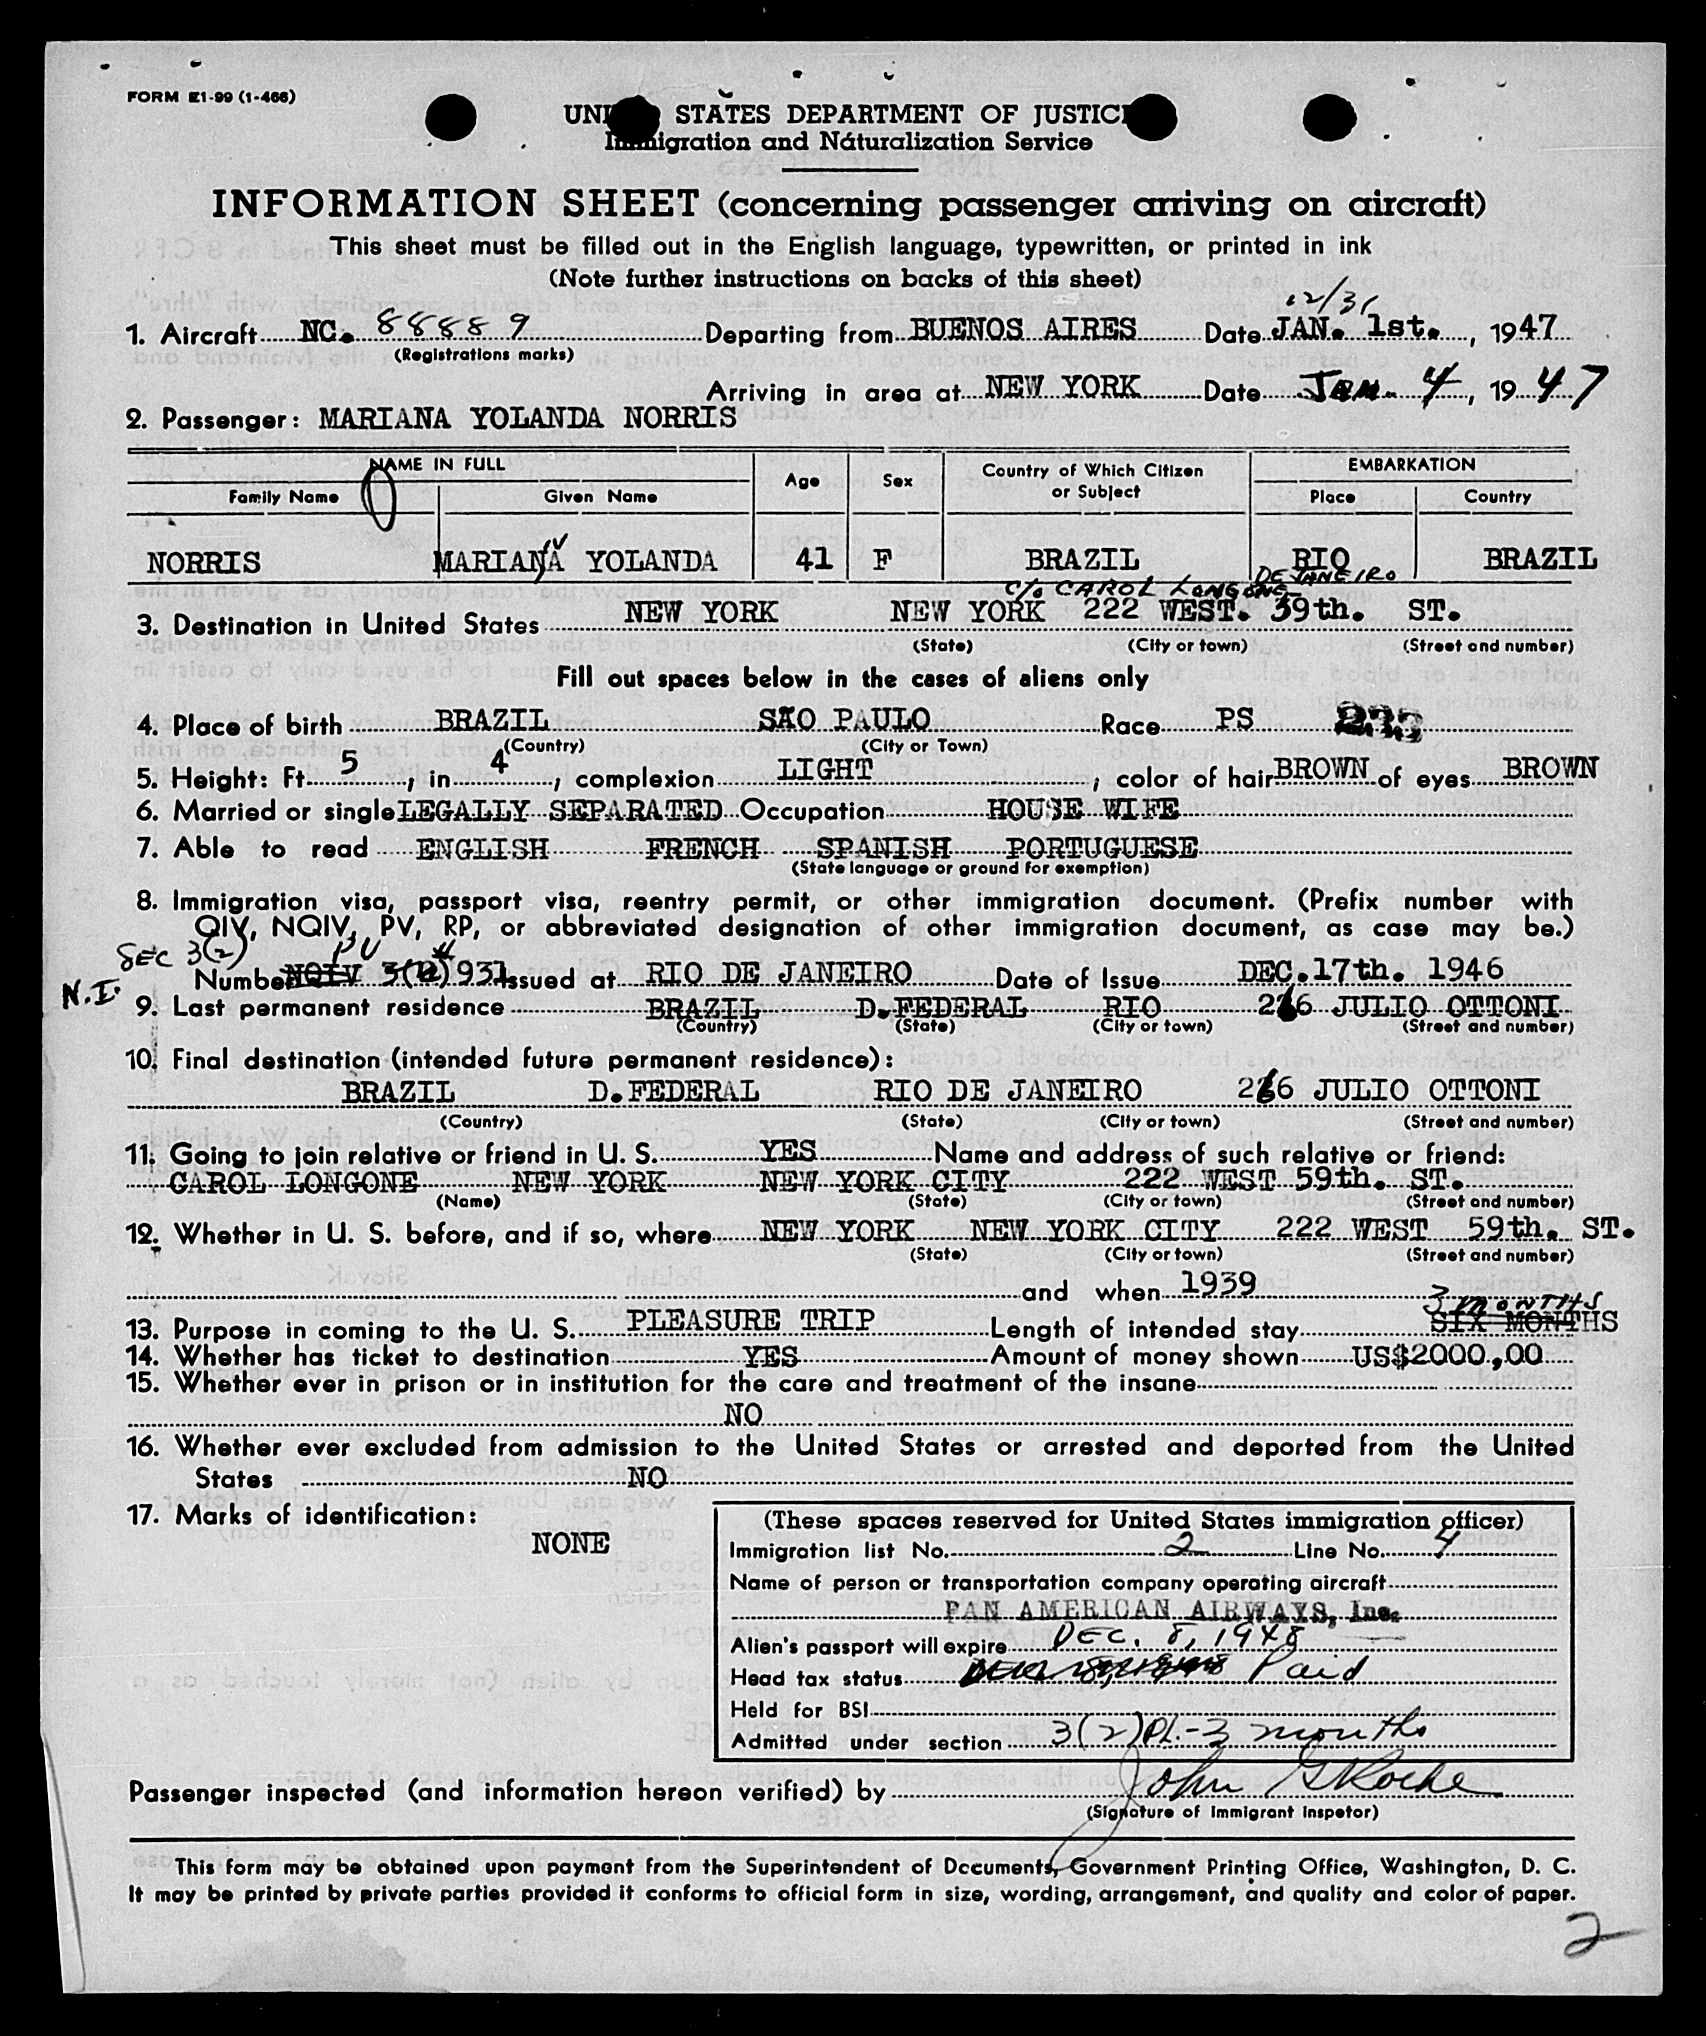 FORM E1-99 (1-466)
UNITED STATES DEPARTMENT OF JUSTICE
Immigration and Naturalization Service
INFORMATION SHEET (concerning passenger arriving on aircraft)
This sheet must be filled out in the English language, typewritten, or printed in ink
(Note further instructions on backs of this sheet)
12/31
1. Aircraft NC. 88889 Departing from BUENOS AIRES Date JAN. 1st. , 1947
(Registrations marks)
Arriving in area at NEW YORK Date JAN. 4 , 1947
2. Passenger: MARIANA YOLANDA NORRIS
NAME IN FULL Age Sex Country of Which Citizen or Subject EMBARKATION
Family Name Given Name Place Country
NORRIS MARIANA YOLANDA 41 F BRAZIL RIO BRAZIL
DE JANEIRO
C/o CAROL LONGONE
3. Destination in United States NEW YORK NEW YORK 222 WEST. 59th. ST.
(State) (City or town) (Street and number)
Fill out spaces below in the cases of aliens only
4. Place of birth BRAZIL SÃO PAULO Race PS
(Country) (City or Town)
5. Height: Ft. 5 , in 4 , complexion LIGHT ; color of hair BROWN of eyes BROWN
6. Married or single LEGALLY SEPARATED Occupation HOUSE WIFE
7. Able to read ENGLISH FRENCH SPANISH PORTUGUESE
(State language or ground for exemption)
8. Immigration visa, passport visa, reentry permit, or other immigration document. (Prefix number with
QIV, NQIV, PV, RP, or abbreviated designation of other immigration document, as case may be.)
SEC 3(2) PV #
Number NQIV 3(2) 931 Issued at RIO DE JANEIRO Date of Issue DEC.17th. 1946
N.I.
9. Last permanent residence BRAZIL D.FEDERAL RIO 266 JULIO OTTONI
(Country) (State) (City or town) (Street and number)
10. Final destination (intended future permanent residence):
BRAZIL D.FEDERAL RIO DE JANEIRO 266 JULIO OTTONI
(Country) (State) (City or town) (Street and number)
11. Going to join relative or friend in U. S. YES Name and address of such relative or friend:
CAROL LONGONE NEW YORK NEW YORK CITY 222 WEST 59th. ST.
(Name) (State) (City or town) (Street and number)
12. Whether in U. S. before, and if so, where NEW YORK NEW YORK CITY 222 WEST 59th. ST.
(State) (City or town) (Street and number)
and when 1939
3 MONTHS
13. Purpose in coming to the U. S. PLEASURE TRIP Length of intended stay SIX MONTHS
14. Whether has ticket to destination YES Amount of money shown US$2000.,00
15. Whether ever in prison or in institution for the care and treatment of the insane
NO
16. Whether ever excluded from admission to the United States or arrested and deported from the United
States NO
17. Marks of identification:
NONE
(These spaces reserved for United States immigration officer)
Immigration list No. 2 Line No. 4
Name of person or transportation company operating aircraft
PAN AMERICAN AIRWAYS, Inc.
Alien's passport will expire DEC. 8, 1948
Head tax status Paid
Held for BSI
Admitted under section 3(2)Pl.-3 months
Passenger inspected (and information hereon verified) by John G Roche
(Signature of Immigrant Inspetor)
This form may be obtained upon payment from the Superintendent of Documents, Government Printing Office, Washington, D. C.
It may be printed by private parties provided it conforms to official form in size, wording, arrangement, and quality and color of paper.
2